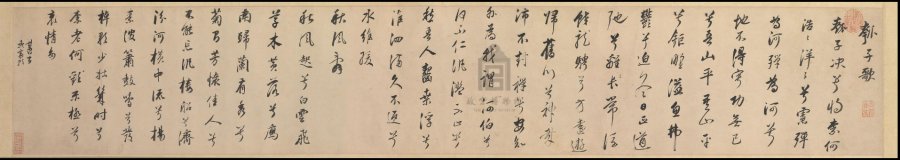 瓠子歌
瓠子決兮將奈何
浩浩洋洋兮慮殫
為河殫為河兮
地不得寧功無已
時兮吾山平吾山平
兮鉅野溢魚弗
鬱兮迫冬日正道
弛兮離常流
蛟龍騁兮方遠遊
歸舊川兮神哉
沛不封禪兮安知
外為我謂河伯兮
何不仁泛濫不止兮
愁吾人齧桑浮兮
淮泗滿久不返兮
水維緩
秋風辭
秋風起兮白雲飛
草木黃落兮鴈
南歸蘭有秀兮
菊有芳懷佳人兮
不能忘泛樓船兮濟
汾河橫中流兮揚
素波簫鼓鳴兮發
棹歌少壯幾時兮
奈老何歡樂極兮
哀情多